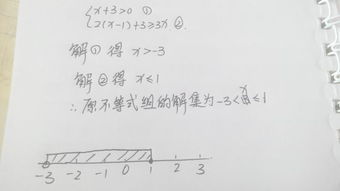 {x+3>0 ①
2(x-1)+3≥3x ②.
解①得 x>-3
解②得 x≤1
∴原不等式组的解集为-3<x≤1
-3 -2 -1 0 1 2 3